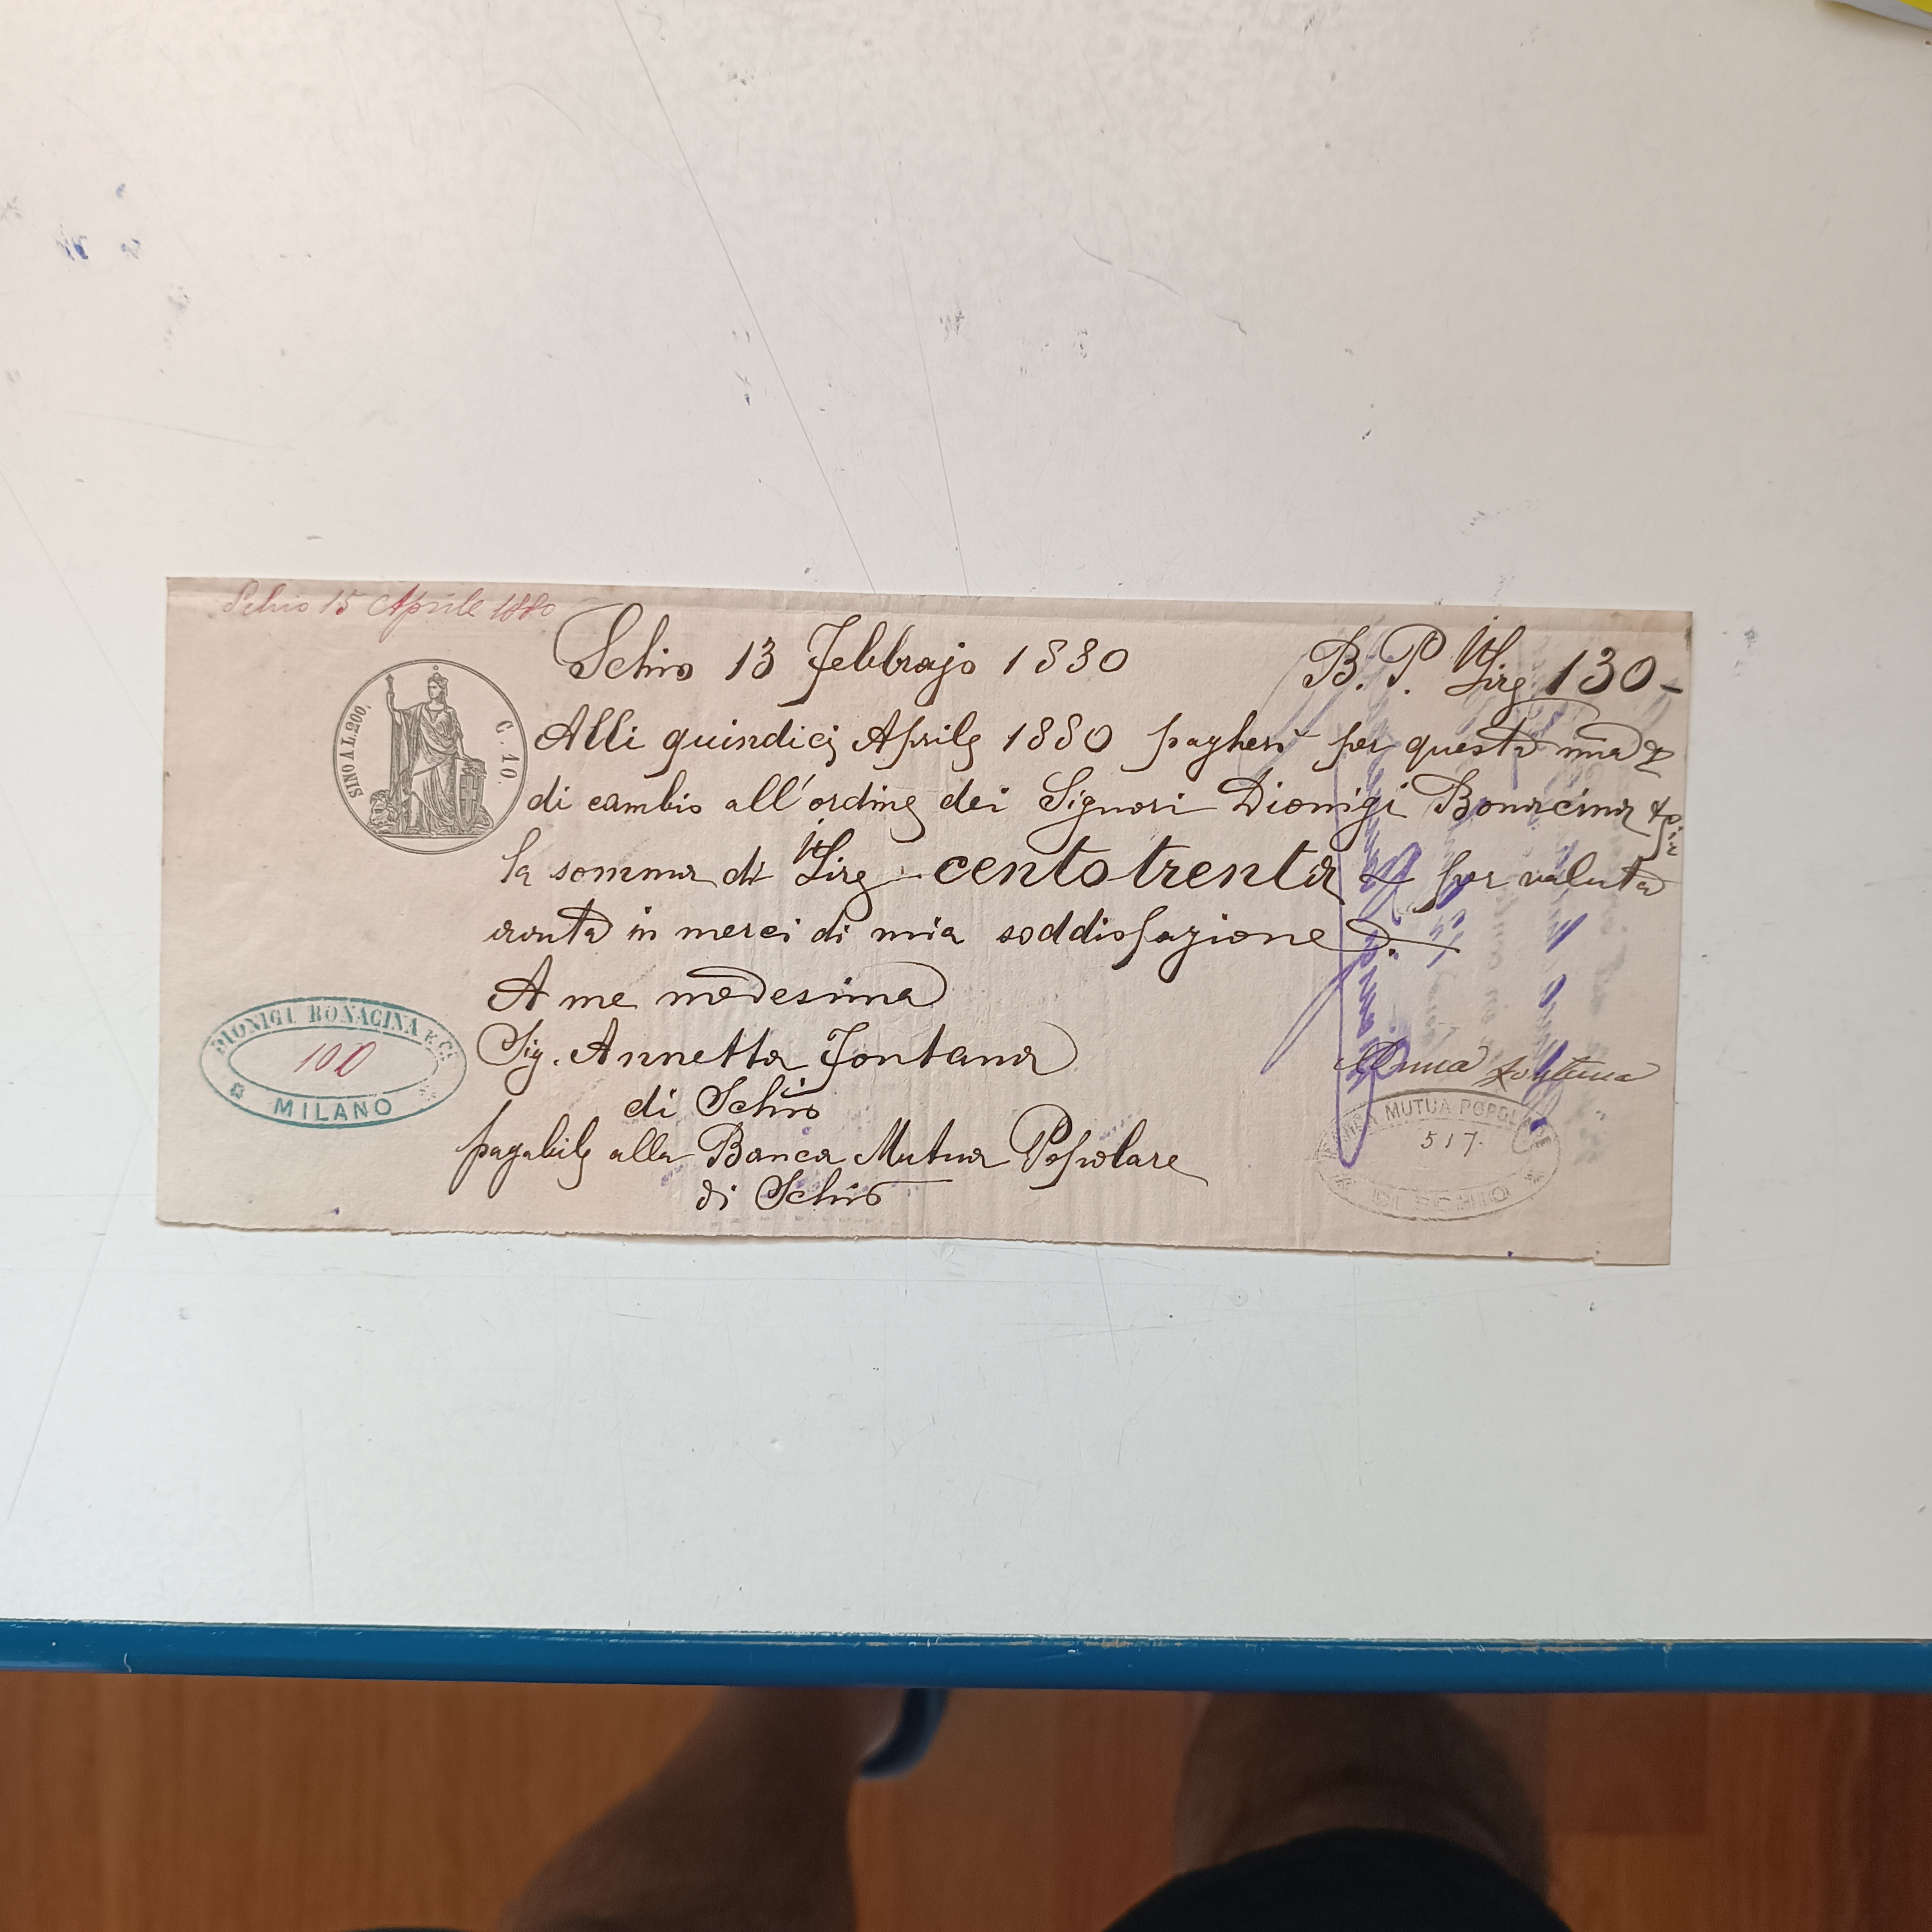 Schio 15 Aprile 1880
Schio 13 Febbrajo 1880 B. P. It Lire 130-
SINO A L. 200.
C. 10.
Alli quindici Aprile 1880 pagherò per questa mia
di cambio all'ordine dei Signori Dionigi Bonacina
la somma di It Lire centotrenta per valuta
avuta in merci di mia soddisfazione.
A me medesima
Sig. Annetta Fontana
di Schio
pagabile alla Banca Mutua Popolare
di Schio
DIONIGI BONACINA E C.
100
MILANO
Anna Fontana
BANCA MUTUA POPOLARE
517.
DI SCHIO